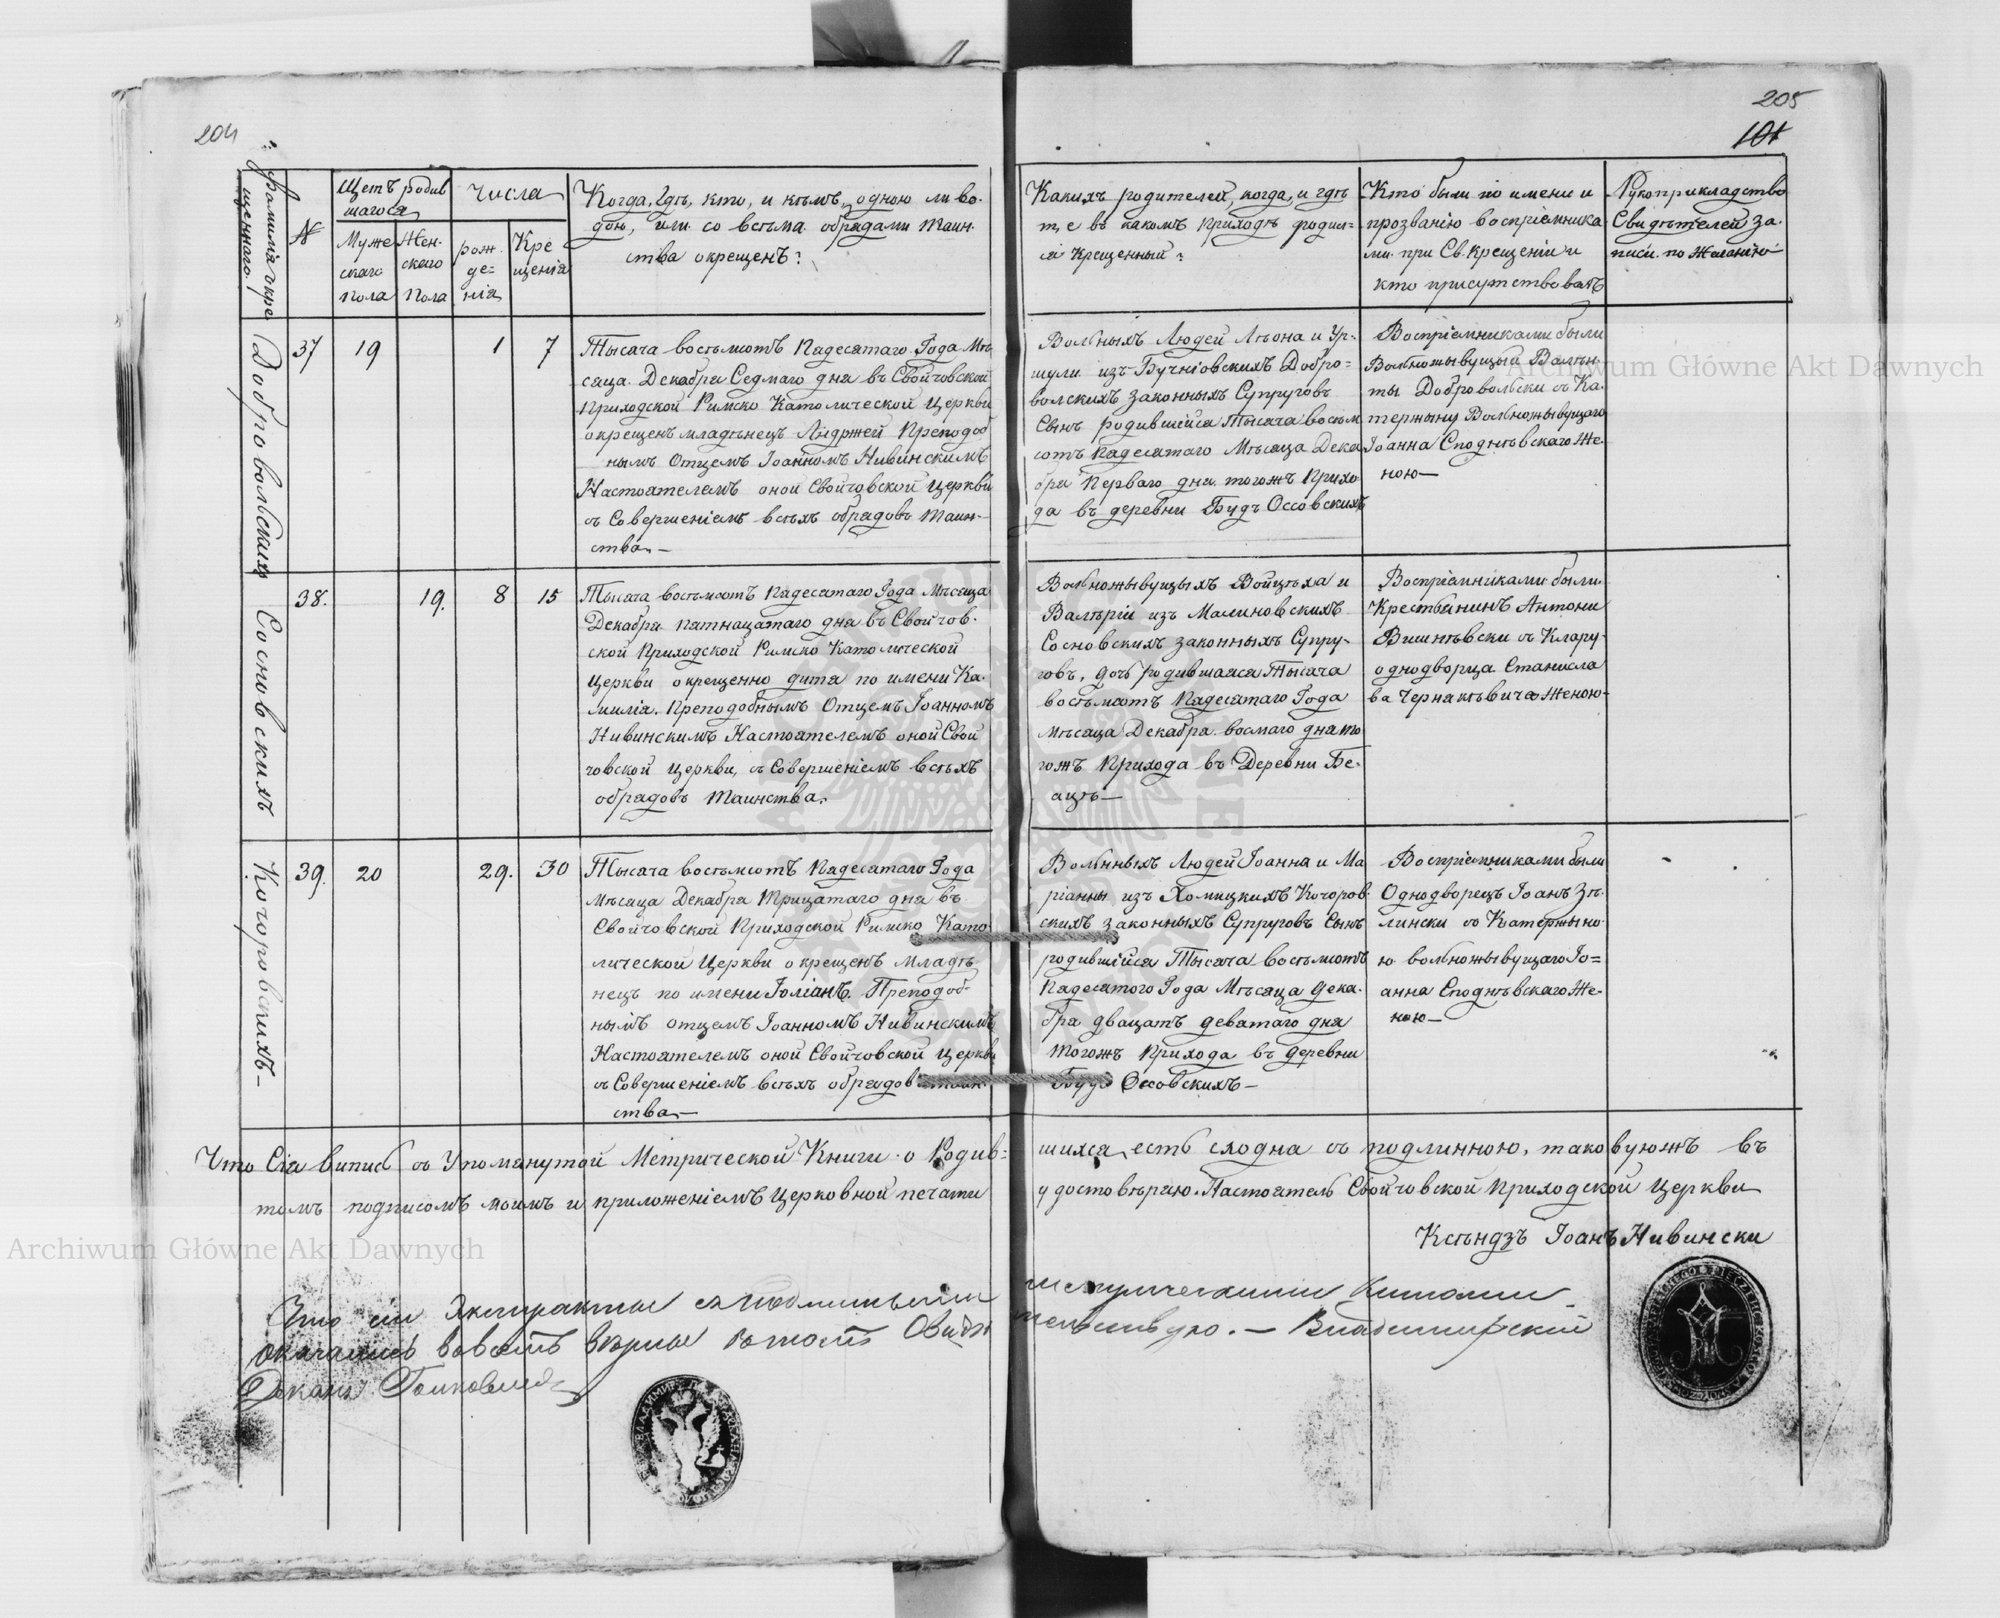 204
Фамиліа окре
щеннаго.
N
Щетъ родив
шагося
Муже
скаго
пола
Жен-
скаго
Пола
Числа
рож-
де=
нія
Кре
щенія
Когда, гдѣ, кто, и кѣмъ, одною ли во-
дою, или со всѣма обрядами Таин-
ства окрещенъ?
Добровольскихъ
37
19
1
7
Тысяча восѣмсотъ Пядесятаго Года Мѣ-
сяца Декабря Седмаго дня въ Свойчовской
Приходской Римско Католической Церкви
окрещенъ младѣнецъ Андржей Преподоб
нымъ Отцемъ Іоанномъ Нивинскимъ
Настоятелемъ оной Свойчовской Церкви
съ Совершеніемъ всѣхъ обрядовъ Таин-
ства.—
Сосновскихъ
38.
19.
8
15
Тысяча восѣмсотъ Пядесятаго Года Мѣсяца
Декабря пятнацатаго дня въ Свойчов-
ской Приходской Римско Католической
Церкви окрещенно дитя по имени Ка-
милія. Преподобнымъ Отцемъ Іоанномъ
Нивинскимъ Настоятелемъ оной Свой
човской Церкви, съ Совершеніемъ всѣхъ
обрядовъ Таинства.
Кочоровскихъ—
39.
20
29.
30
Тысяча восѣмсотъ Пядесятаго Года
Мѣсяца Декабря Трицатаго дня въ
Свойчовской Приходской Римско Като-
лической Церкви окрещенъ Младѣ-
нецъ по имени Іоліанъ. Преподоб-
нымъ отцемъ Іоанномъ Нивинскимъ
Настоятелемъ оной Свойчовской Церкви
съ Совершеніемъ всѣхъ обрядов Таин-
ства—
Что Сія випись съ Упомянутой Метрической Книги о Родив=
томъ подписомъ моимъ и приложеніемъ Церковной печати
Что сіи Экстракты
оказались вовсемъ вѣрные въ томъ
Деканъ
205
101
Какихъ родителей, когда, и гдѣ
т, е въ какомъ Приходѣ родил=
ся Крещенный?
Кто были по имени и
прозванію воспріемника-
ми при Св. Крещеніи и
кто присутствовалъ
Рукоприкладство
Свидѣтелей За-
писи по Желанію
Вольныхъ Людей Лѣона и Ур-
шули изъ Бучніовскихъ Добро=
вольскихъ законныхъ Супруговъ
Сынъ родившійся Тысяча восѣм
сотъ Пядесятаго Мѣсяца Дека
бря Перваго дня тогожъ Прихо
да въ деревни Будъ Оссовскихъ
Воспріемниками были
Вольножывущый Валѣн-
ты Добровольски съ Ка-
тержыны Вольножывущаго
Іоанна Споднѣвскаго Же-
ною—
Вольножывущыхъ Войцѣха и
Валѣріи изъ Малиновскихъ
Сосновскихъ законныхъ Супру-
говъ, дочь родившаяся Тысяча
восѣмсотъ Пядесятаго Года
Мѣсяца Декабря восмаго дня то
гожъ Прихода въ Деревни Бе-
ацѣ—
Воспріемниками были
Крестьянинъ Антони
Вишнѣвски съ Клару-
однодворца Станисла
ва Чернякѣвича Женою-
Вольныхъ Людей Іоанна и Ма
ріанны изъ Хомицкихъ Кочоров
скихъ законныхъ Супруговъ Сынъ
родившійся Тысяча восѣмсотъ
Пядесятого Года Мѣсяца Дека-
бря двацатъ деватаго дня
Тогожъ Прихода въ деревни
Будъ Оссовскихъ—
Воспріемниками были
Однодворецъ Іоанъ Зѣ-
лински съ Катержыно
ю вольножывущаго Іо=
анна Споднѣвскаго Же-
ною—
шихся, есть сходна съ подлинною, таковуюжъ въ
удостовѣряю. Настоятель Свойчовской Приходской Церкви
Ксѣндзъ Іоанъ Нивински
метрическими Книгами
Владимирскій
Archiwum Główne Akt Dawnych
Archiwum Główne Akt Dawnych